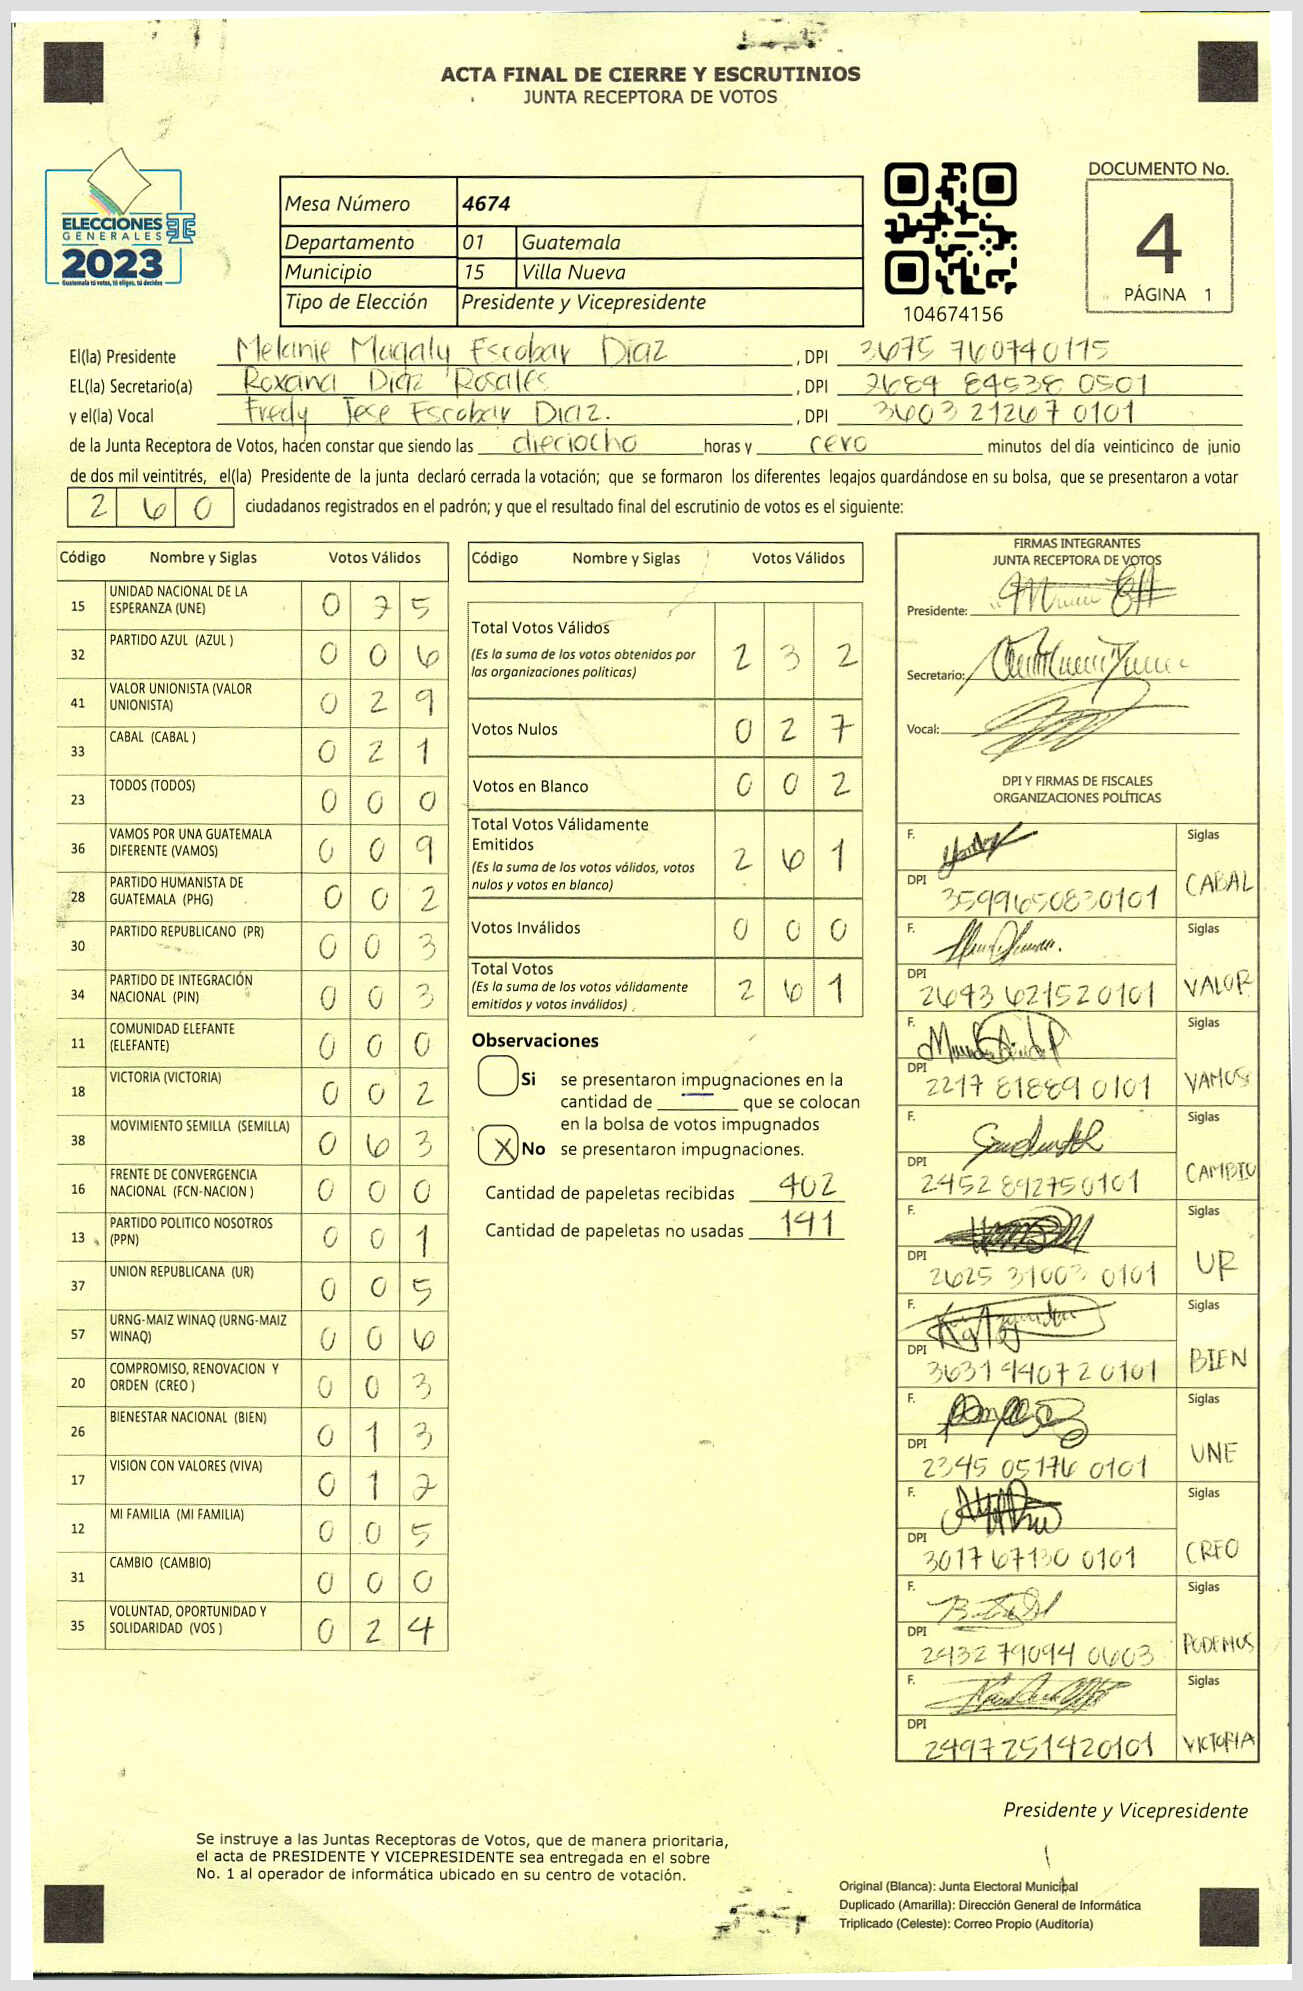 ACTA FINAL DE CIERRE Y ESCRUTINIOS
JUNTA RECEPTORA DE VOTOS
ELECCIONES
GENERALES
2023
Guatemala tú votas, tú eliges, tú decides
Mesa Número 4674
Departamento 01 Guatemala
Municipio 15 Villa Nueva
Tipo de Elección Presidente y Vicepresidente
104674156
DOCUMENTO No.
4
PÁGINA 1
El(la) Presidente Melanie Magaly Escobar Diaz , DPI 3675 760740115
EL(la) Secretario(a) Roxana Diaz Rosales , DPI 2689 84538 0501
y el(la) Vocal Fredy Jese Escobar Diaz. , DPI 3603 21267 0101
de la Junta Receptora de Votos, hacen constar que siendo las dieciocho horas y cero minutos del día veinticinco de junio
de dos mil veintitrés, el(la) Presidente de la junta declaró cerrada la votación; que se formaron los diferentes legajos quardándose en su bolsa, que se presentaron a votar
2 6 0 ciudadanos registrados en el padrón; y que el resultado final del escrutinio de votos es el siguiente:
Código Nombre y Siglas Votos Válidos
15 UNIDAD NACIONAL DE LA ESPERANZA (UNE) 0 7 5
32 PARTIDO AZUL (AZUL ) 0 0 6
41 VALOR UNIONISTA (VALOR UNIONISTA) 0 2 9
33 CABAL (CABAL ) 0 2 1
23 TODOS (TODOS) 0 0 0
36 VAMOS POR UNA GUATEMALA DIFERENTE (VAMOS) 0 0 9
28 PARTIDO HUMANISTA DE GUATEMALA (PHG) 0 0 2
30 PARTIDO REPUBLICANO (PR) 0 0 3
34 PARTIDO DE INTEGRACIÓN NACIONAL (PIN) 0 0 3
11 COMUNIDAD ELEFANTE (ELEFANTE) 0 0 0
18 VICTORIA (VICTORIA) 0 0 2
38 MOVIMIENTO SEMILLA (SEMILLA) 0 6 3
16 FRENTE DE CONVERGENCIA NACIONAL (FCN-NACION ) 0 0 0
13 PARTIDO POLITICO NOSOTROS (PPN) 0 0 1
37 UNION REPUBLICANA (UR) 0 0 5
57 URNG-MAIZ WINAQ (URNG-MAIZ WINAQ) 0 0 6
20 COMPROMISO, RENOVACION Y ORDEN (CREO ) 0 0 3
26 BIENESTAR NACIONAL (BIEN) 0 1 3
17 VISION CON VALORES (VIVA) 0 1 2
12 MI FAMILIA (MI FAMILIA) 0 0 5
31 CAMBIO (CAMBIO) 0 0 0
35 VOLUNTAD, OPORTUNIDAD Y SOLIDARIDAD (VOS ) 0 2 4
Código Nombre y Siglas Votos Válidos
Total Votos Válidos 2 3 2
(Es la suma de los votos obtenidos por
las organizaciones politicas)
Votos Nulos 0 2 7
Votos en Blanco 0 0 2
Total Votos Válidamente
Emitidos 2 6 1
(Es la suma de los votos válidos, votos
nulos y votos en blanco)
Votos Inválidos 0 0 0
Total Votos 2 6 1
(Es la suma de los votos válidamente
emitidos y votos inválidos)
Observaciones
Si se presentaron impugnaciones en la
cantidad de ________ que se colocan
en la bolsa de votos impugnados
X No se presentaron impugnaciones.
Cantidad de papeletas recibidas 402
Cantidad de papeletas no usadas 141
FIRMAS INTEGRANTES
JUNTA RECEPTORA DE VOTOS
Presidente:
Secretario:
Vocal:
DPI Y FIRMAS DE FISCALES
ORGANIZACIONES POLÍTICAS
F. Siglas
DPI 3599650830101 CABAL
F. Siglas
DPI 2693 62152 0101 VALOR
F. Siglas
DPI 2217 81889 0101 VAMOS
F. Siglas
DPI 2452 892750101 CAMBIO
F. Siglas
DPI 2625 31003 0101 UR
F. Siglas
DPI 3631 44072 0101 BIEN
F. Siglas
DPI 2345 05176 0101 UNE
F. Siglas
DPI 3017 67130 0101 CREO
F. Siglas
DPI 2432 79094 0603 PODEMOS
F. Siglas
DPI 2497251420101 VICTORIA
Presidente y Vicepresidente
Se instruye a las Juntas Receptoras de Votos, que de manera prioritaria,
el acta de PRESIDENTE Y VICEPRESIDENTE sea entregada en el sobre
No. 1 al operador de informática ubicado en su centro de votación.
Original (Blanca): Junta Electoral Municipal
Duplicado (Amarilla): Dirección General de Informática
Triplicado (Celeste): Correo Propio (Auditoría)